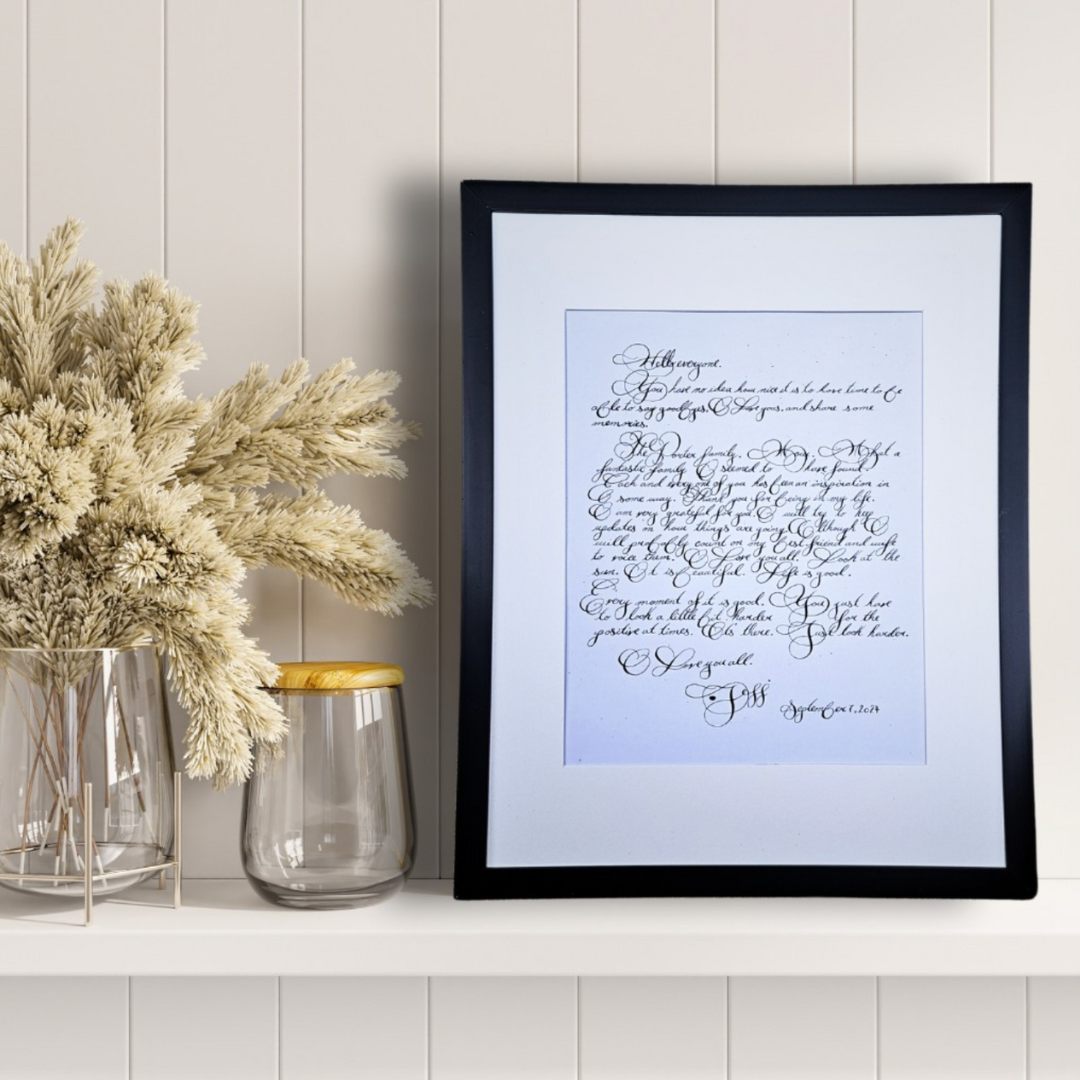 Hello everyone.
You have no idea how nice it is to have time to be
able to say goodbyes, I Love you, and share some
memories.
The Porter family. Wow, What a
fantastic family I seemed to have found
Each and every one of you has been an inspiration in
some way. Thank you for being in my life.
I am very grateful for you. I will try to keep
updates on how things are going. Although I
will probably count on my best friend and wife
to voice them. I Love you all. Look at the
sun. It is beautiful. Life is good.
Every moment of it is good. You just have
to look a little bit harder for the
positive at times. It is there. Just look harder.
I Love you all.
September 7, 2024